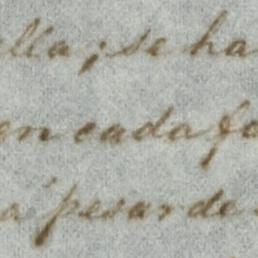 ella; se ha
en cada fa
a' pesar de